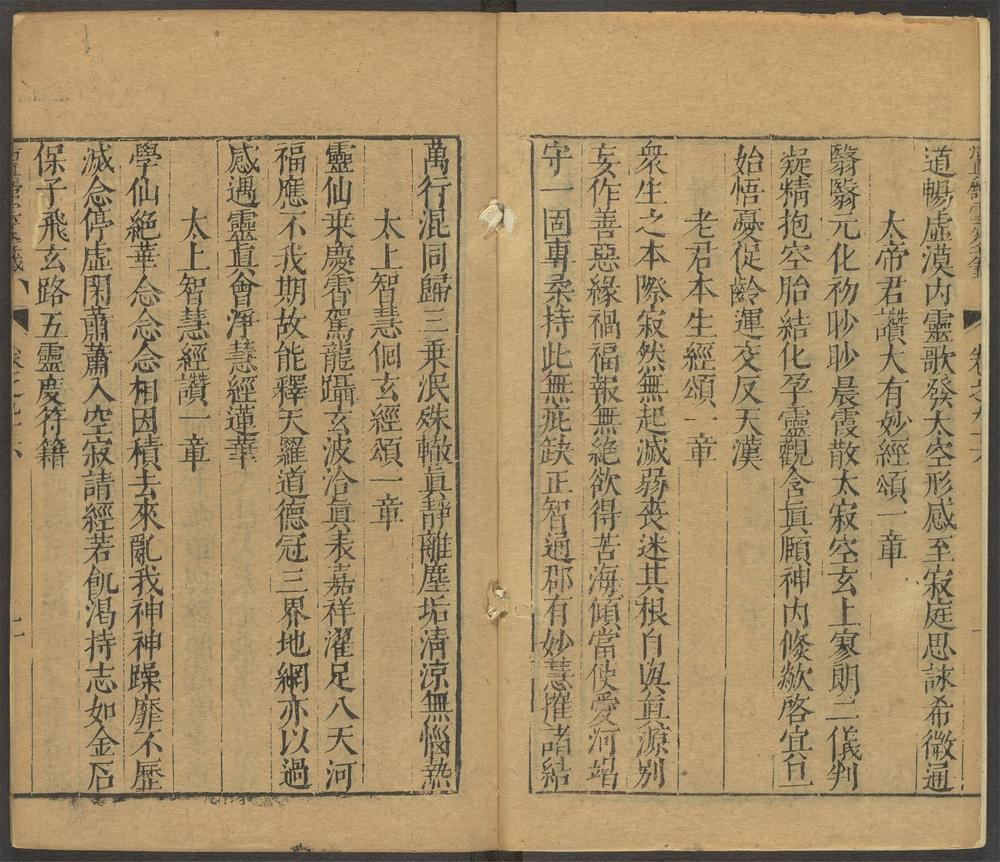 道暢虛漠內靈歌發太空形感至寂庭思詠希微通
太帝君讚大有妙經頌一章
翳翳元化初眇眇晨霞散太寂空玄上寥朗二儀判
凝精抱空胎結化孕靈觀含眞頤神內倏歘啓宜旦
始悟憂促齡運交反天漢
老君本生經頌一章
衆生之本際寂然無起滅弱喪迷其根自與眞源別
妄作善惡緣禍福報無絶欲得苦海傾當使愛河竭
守一固專柔持此無疵缺正智通郡有妙慧摧諸結
萬行混同歸三乗泯殊轍眞靜離塵垢清涼無惱熱
太上智慧侗玄經頌一章
靈仙乘慶霄駕龍躡玄波洽眞表嘉祥濯足八天河
福應不我期故能釋天羅道德冠三界地網亦以過
感遇靈眞會淨慧經蓮華
太上智慧經讚一章
學仙絶華念念念相因積去來亂我神神躁靡不歷
滅念停虛閑蕭蕭入空寂請經若飢渴持志如金石
保子飛玄路五靈慶符籍